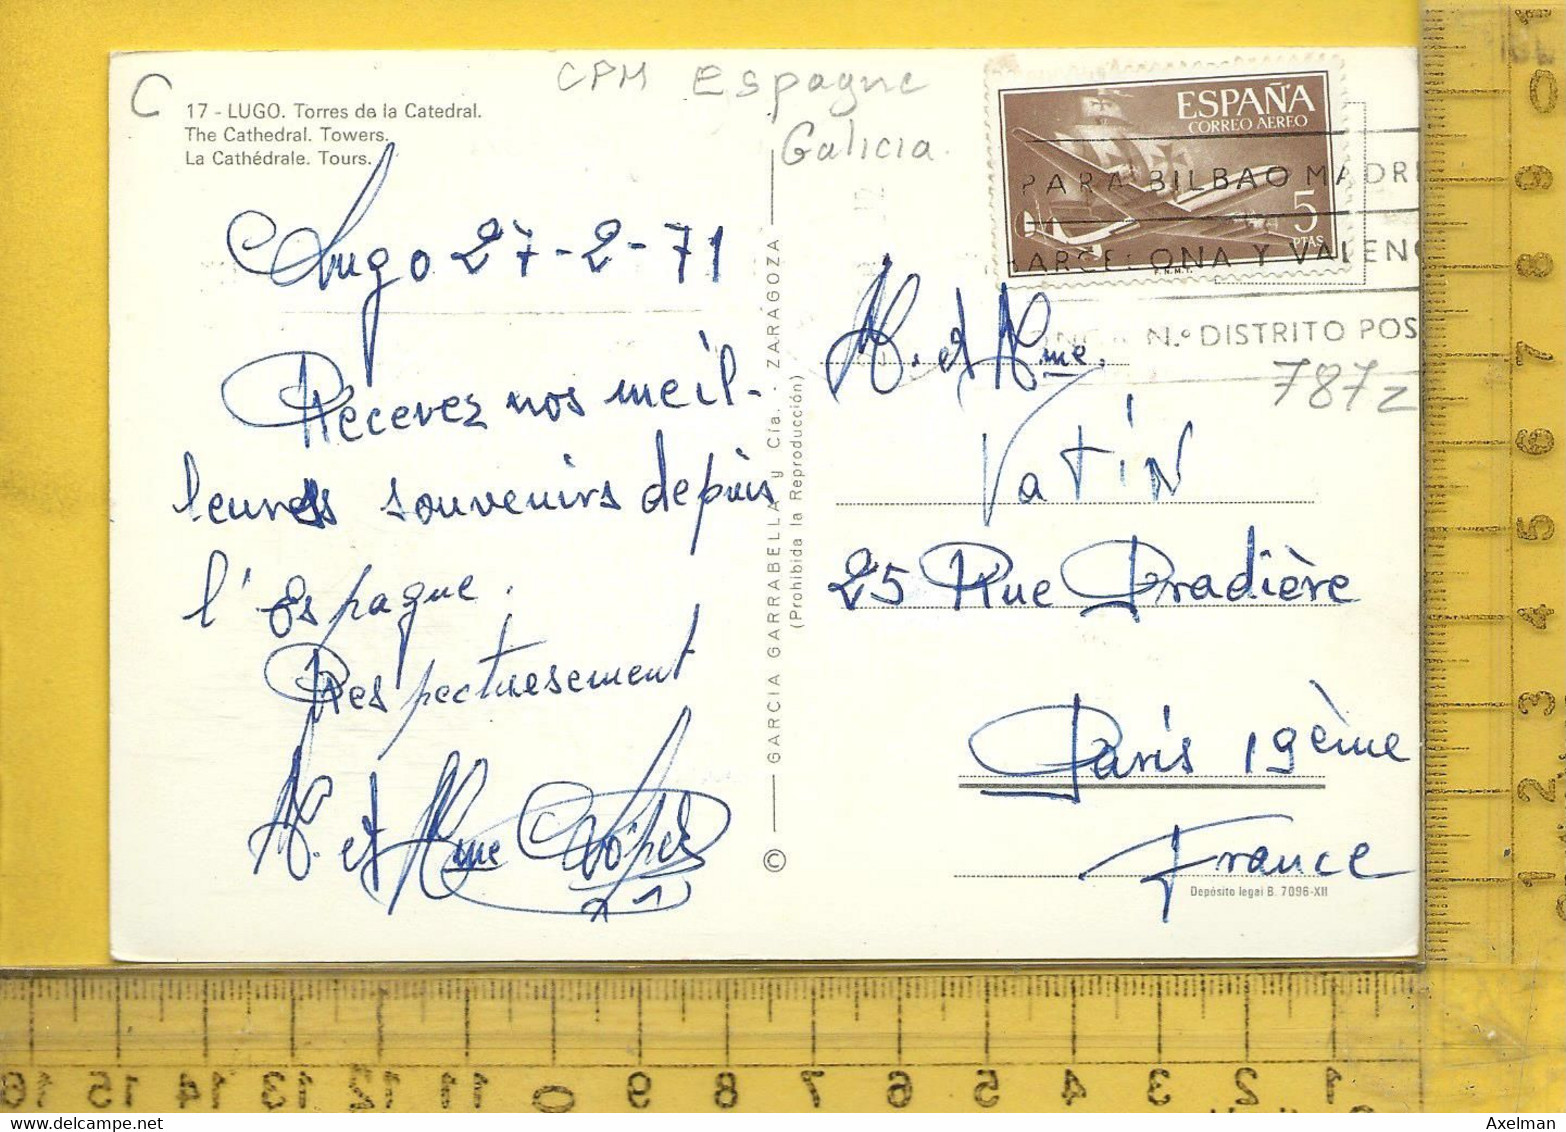 C
CPM Espagne
Galicia.
17 - LUGO. Torres de la Catedral.
The Cathedral. Towers.
La Cathédrale. Tours.
Lugo 27-2-71
Recevez nos meil-
leures souvenirs depuis
l'Espagne.
Respectuesement
M. et Mme López
GARCIA GARRABELLA y Cía. - ZARAGOZA
(Prohibida la Reproducción)
©
ESPAÑA
CORREO AEREO
5
PTAS
F.N.M.T.
PARA BILBAO MADRI
ARCELONA Y VALENC
N.º DISTRITO POS
787z
M. et Mme.
Vatin
25 Rue Pradière
Paris 19ème
France
Depósito legal B. 7096-XII
16 15 14 13 12 11 0 9 8 7 6 5 4 3 2 1
0 9 8 7 6 5 4 3 2 1
Axelman